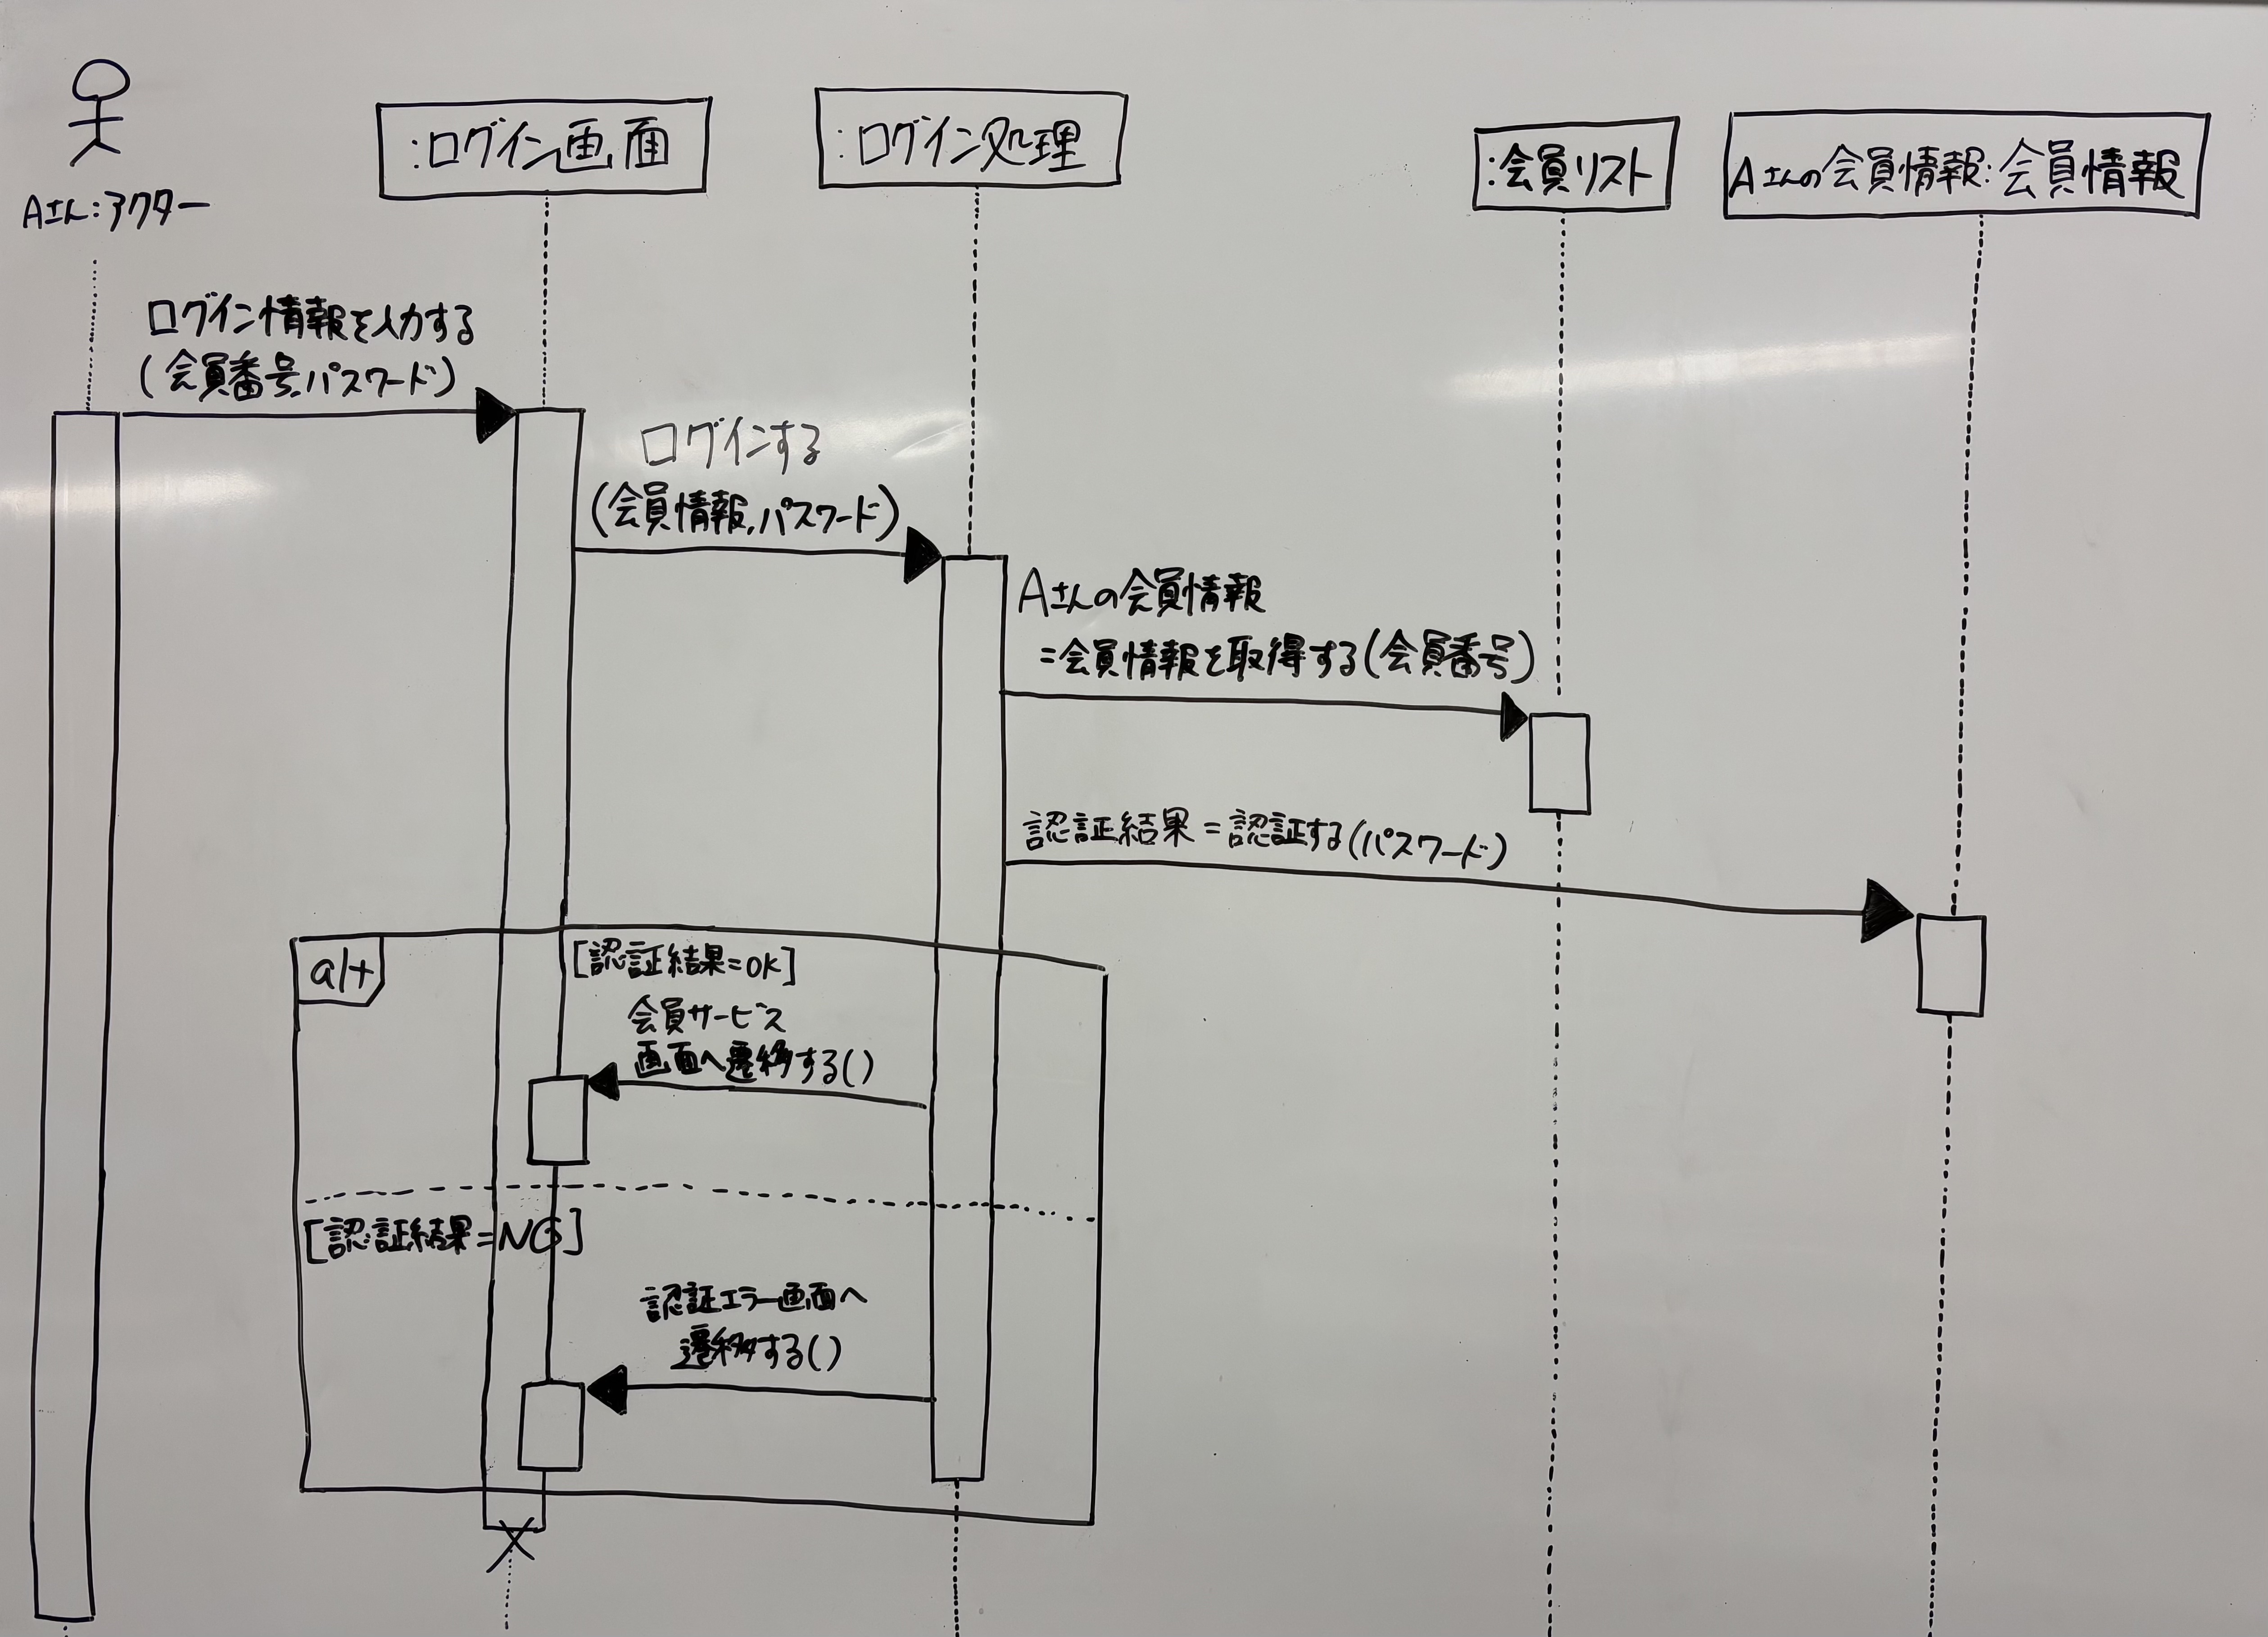 :ログイン画面
:ログイン処理
:会員リスト
Aさんの会員情報:会員情報
Aさん:アクター
ログイン情報を入力する
(会員番号,パスワード)
ログインする
(会員情報,パスワード)
Aさんの会員情報
=会員情報を取得する(会員番号)
認証結果=認証する(パスワード)
alt
[認証結果=OK]
会員サービス
画面へ遷移する()
[認証結果=NG]
認証エラー画面へ
遷移する()